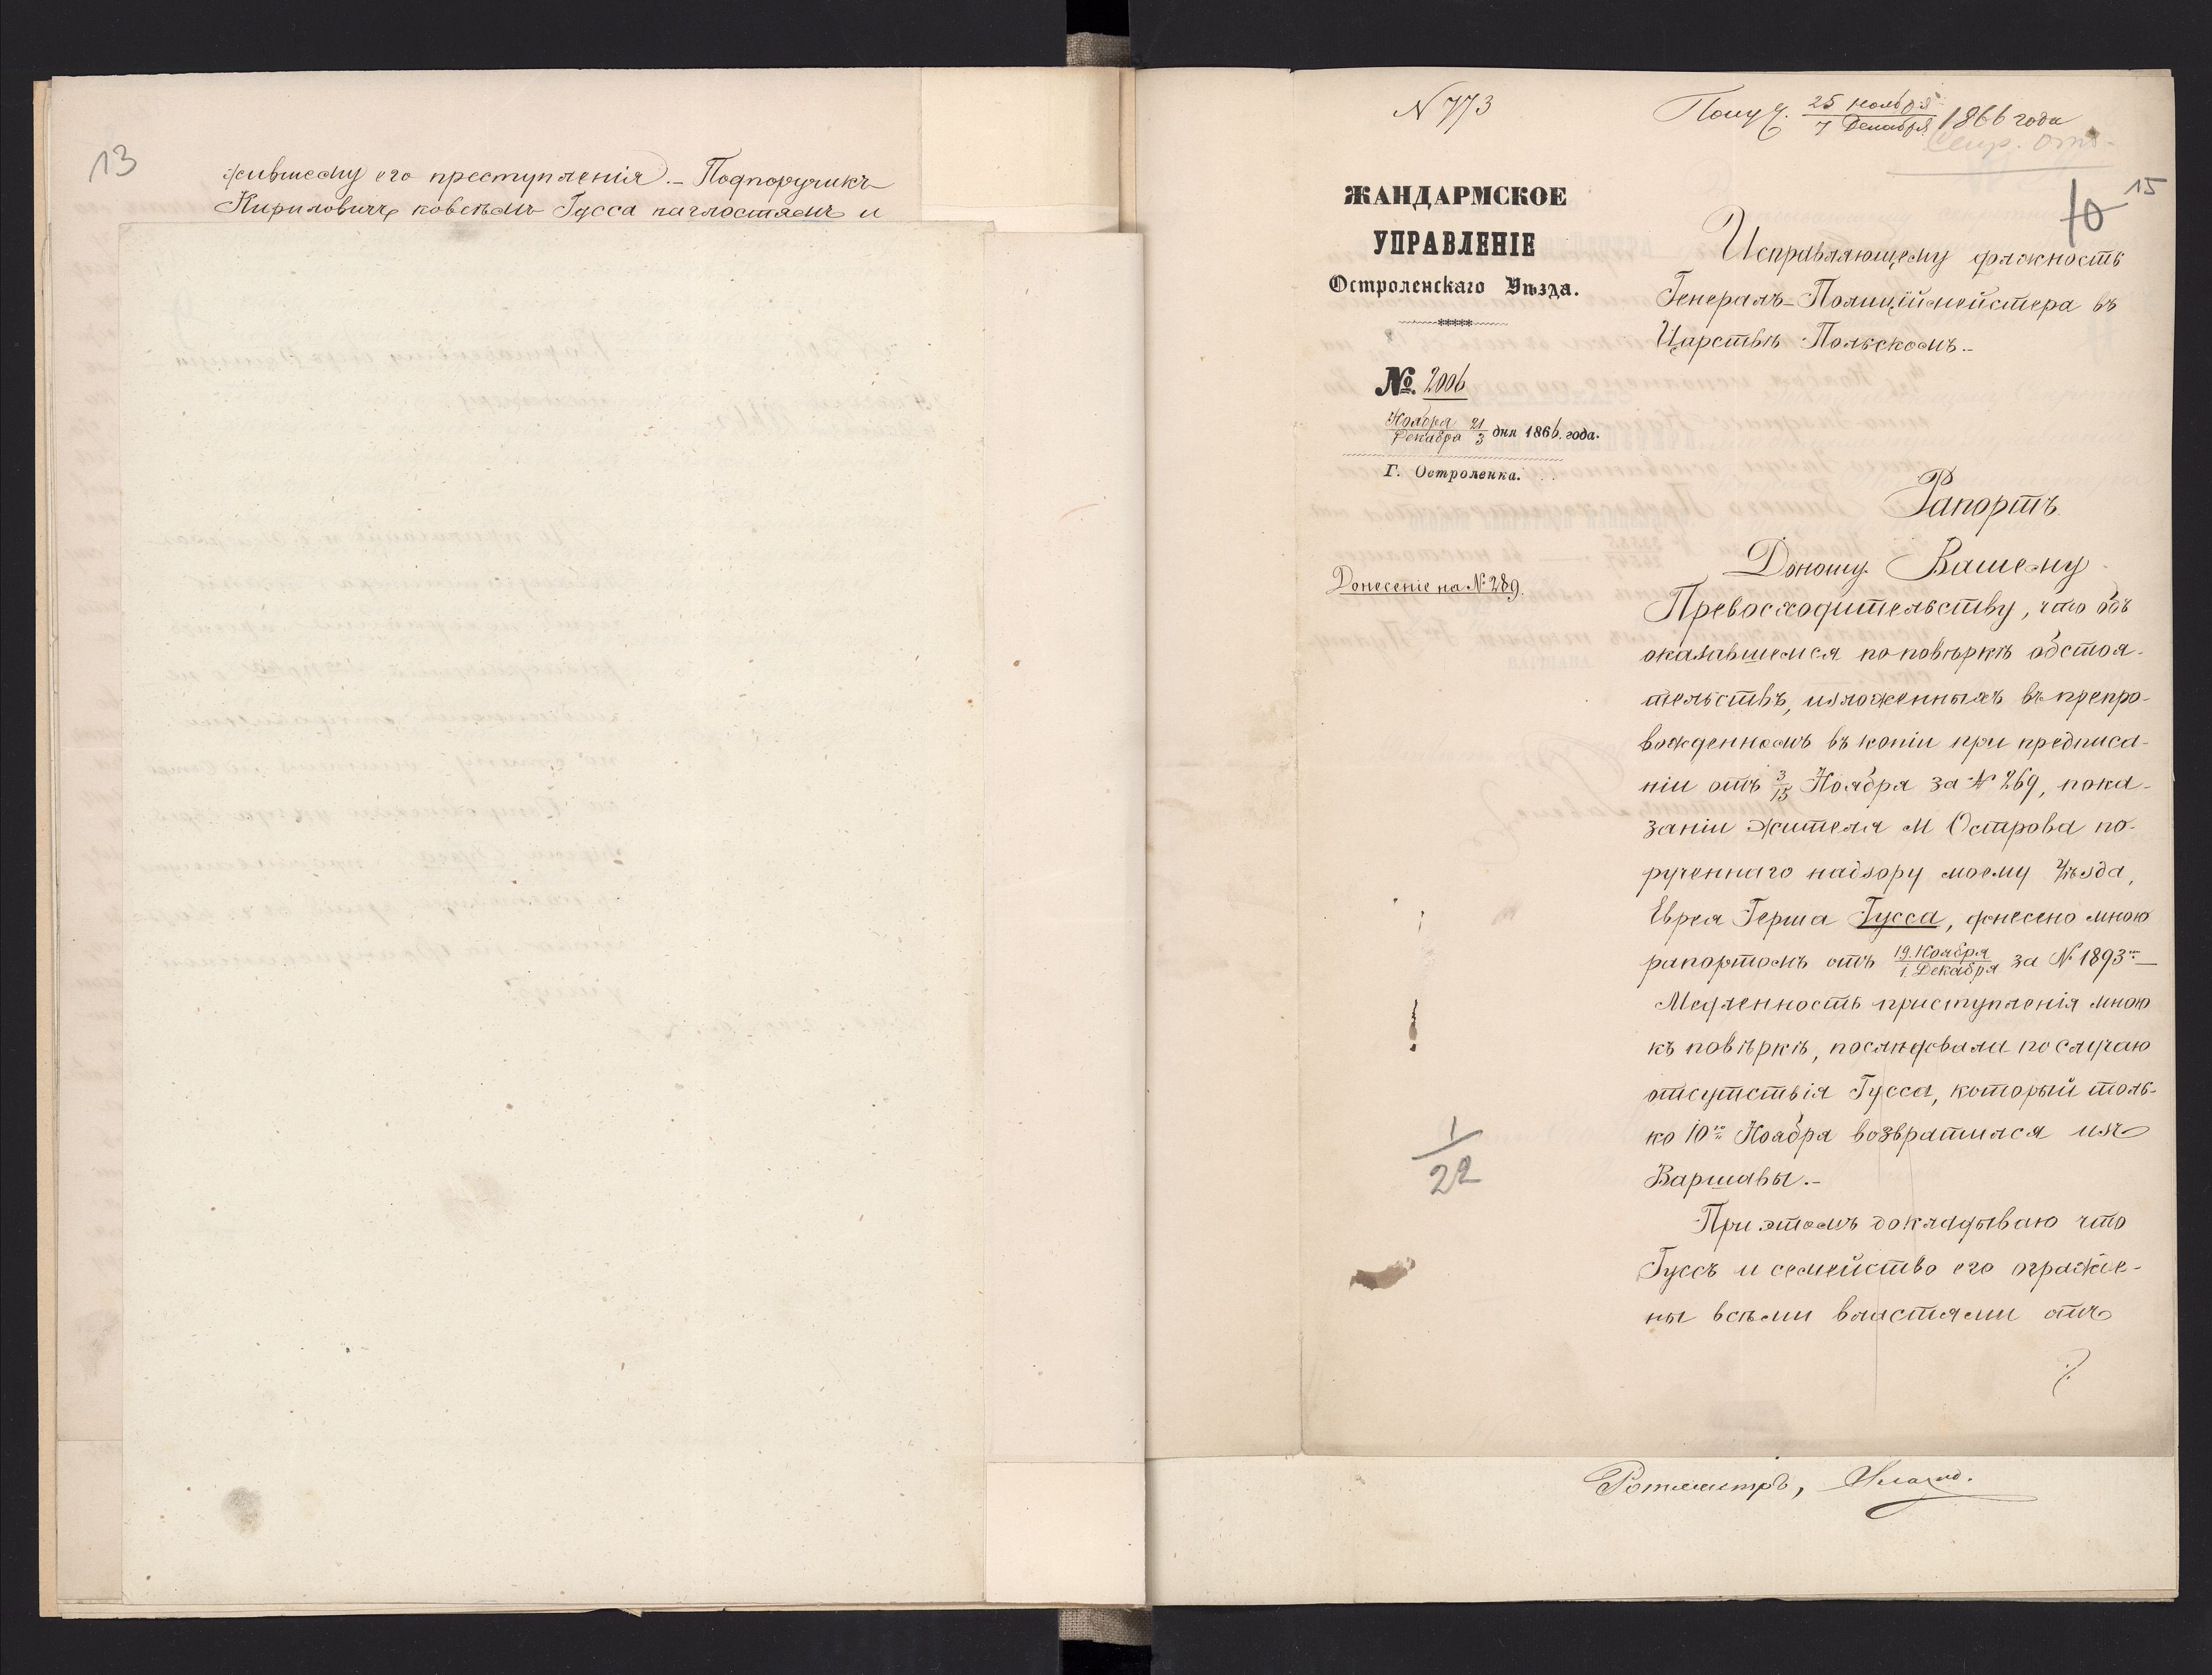 13
жившему его преступленія. – Подпоручикъ
Кириловичъ
Гусса
и
N 773
Получ. 25 Ноября / 7 Декабря 1866 года
Секр. Отд.
10
15
ЖАНДАРМСКОЕ
УПРАВЛЕНІЕ
Остроленскаго Уѣзда.
№. 2006
Ноября 21 / Декабря 3 дня 1866. года.
Г. Остроленка.
Донесеніе на № 289.
Исправляющему должность
Генералъ-Полиціймейстера въ
Царствѣ Польскомъ. –
Рапортъ
Доношу Вашему
Превосходительству, что объ
оказавшемся по повѣркѣ обстоя-
тельствъ, изложенныхъ въ препро-
вожденномъ въ копіи при предписа-
ніи отъ 3/15 Ноября за № 269, пока-
заніи жителя М Острова по-
рученнаго надзору моему Уѣзда,
Еврея Герша Гусса, донесено мною
рапортомъ отъ 19. Ноября / 1. Декабря за № 1893. –
Медленность приступленія мною
къ повѣркѣ, послѣдовала по случаю
отсутствія Гусса, который толь-
ко 10го Ноября возвратился изъ
Варшавы. –
При этомъ докладываю что
Гуссъ и семейство его огражде-
ны всѣми властями отъ
1/22
Ротмистръ,